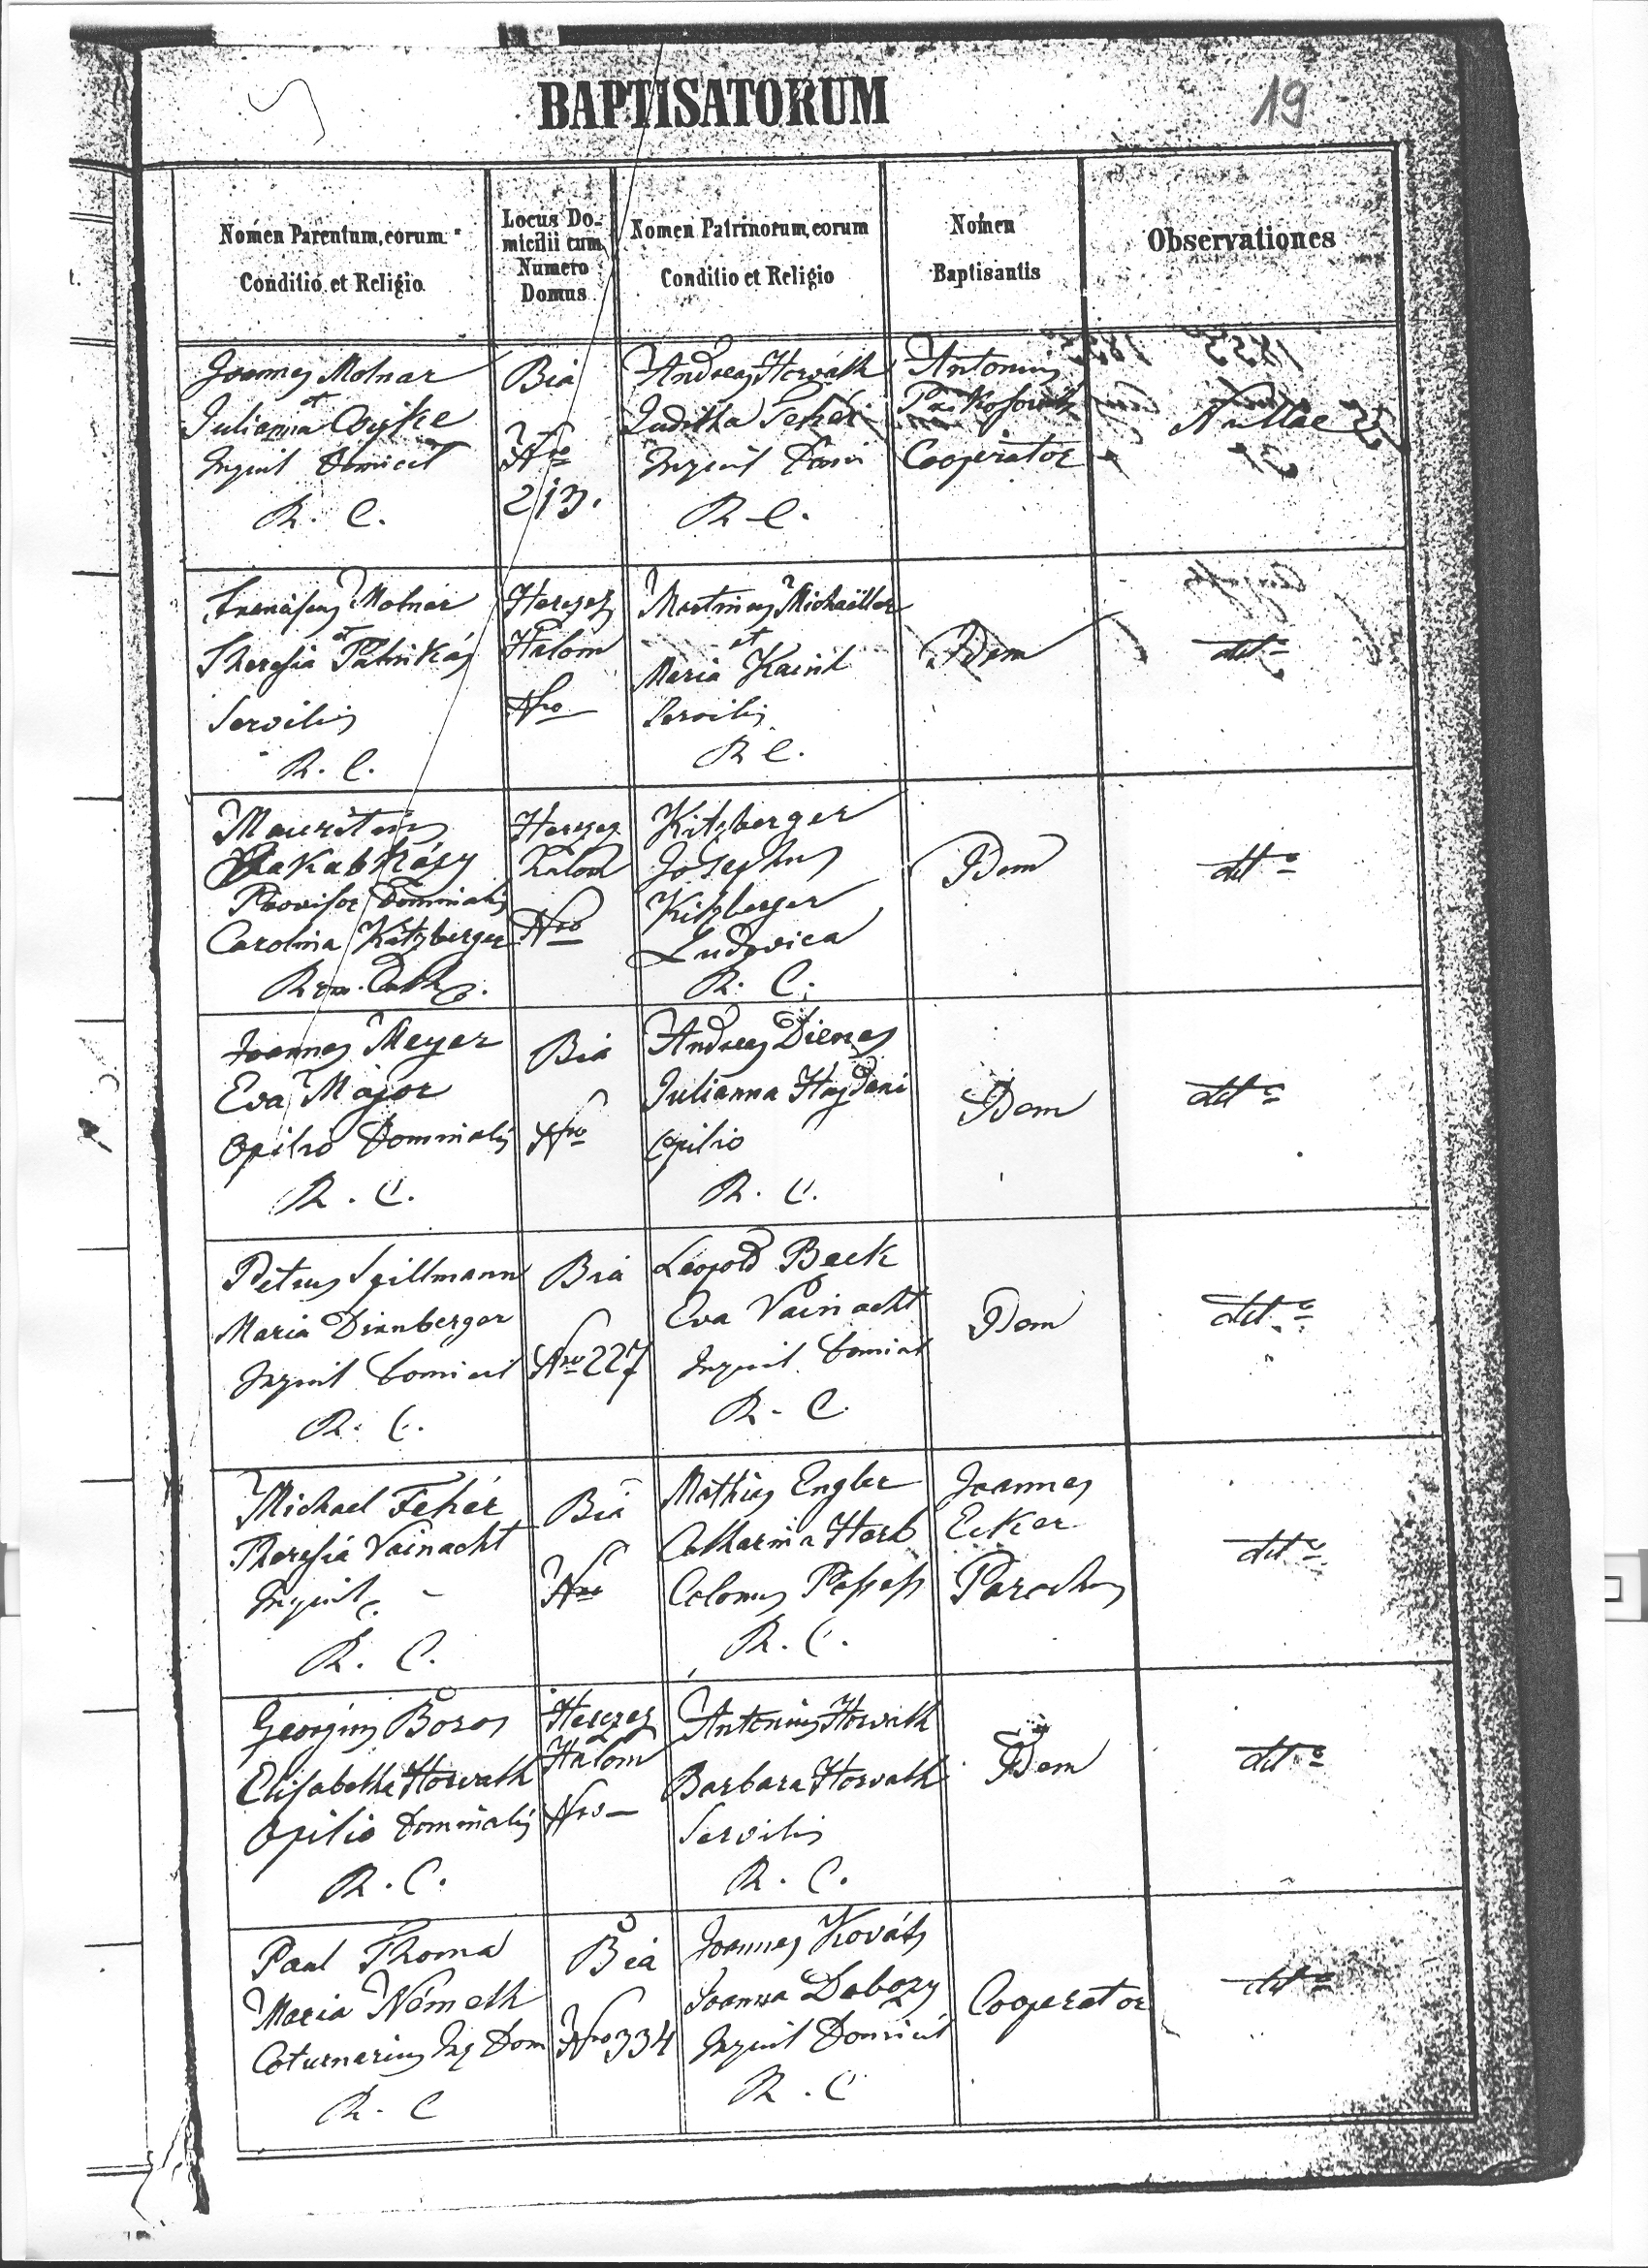 BAPTISATORUM
19
Nomen Parentum, eorum
Conditio et Religio
Locus Do-
micilii cum
Numero
Domus
Nomen Patrinorum, eorum
Conditio et Religio
Nomen
Baptisantis
Observationes
t.
Joannes Molnar
et
Julianna
Inquil Domicil
R. C.
Bia
Nro
213.
Andreas Horváth
Juditha Fehér
Inquil Domi
R. C.
Antonius
Cooperator
Nullae
Franciscus Molnár
et
Theresia Patrikás
Servilis
R. C.
Herczeg
Halom
Nro
Martinus Michaëller
et
Maria Kaintz
Servilis
R C.
Idem
detto
Mauritius
Jakabházy
Provisor Dominalis
Carolina Kitzberger
Rom. Cath.
Herczeg
halom
Nro
Kitzberger
Josephus
Kitzberger
Ludovica
R. C.
Idem
detto
Joannes Meyer
Eva Major
Opilio Dominalis
R. C.
Bia
Nro
Andreas Dienes
Julianna Hajdani
Opilio
R. C.
Idem
detto
Petrus Spillmann
Maria Dirnberger
Inquil Domicil
R. C.
Bia
Nro 227
Leopold Beck
Eva Vainacht
Inquil Domicil
R. C
Idem
detto
Michael Fehér
Theresia Vainacht
Inquil
R. C.
Bia
Nro
Mathias Engler
Catharina Herb
Colonus Possess
R. C.
Joannes
Ecker
Parochus
detto
Georgius Boros
Elisabetha Horvath
Opilio Dominalis
R. C.
Herczeg
Halom
Nro
Antonius Horvath
Barbara Horvath
Servilis
R. C.
Idem
detto
Paul Thoma
Maria Németh
Coturnarius Inq Dom
R. C
Bia
Nro 334
Joannes Kováts
Joanna Dobozy
Inquil Domicil
R. C
Cooperator
detto